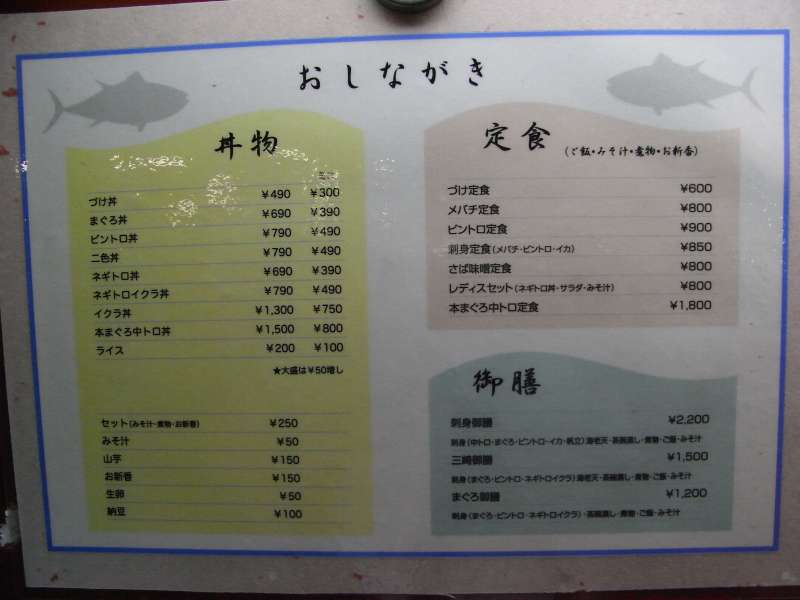 おしながき
丼物
ミニ
づけ丼 ¥490 ¥300
まぐろ丼 ¥690 ¥390
ビントロ丼 ¥790 ¥490
二色丼 ¥790 ¥490
ネギトロ丼 ¥690 ¥390
ネギトロイクラ丼 ¥790 ¥490
イクラ丼 ¥1,300 ¥750
本まぐろ中トロ丼 ¥1,500 ¥800
ライス ¥200 ¥100
★大盛は¥50増し
セット(みそ汁・煮物・お新香) ¥250
みそ汁 ¥50
山芋 ¥150
お新香 ¥150
生卵 ¥50
納豆 ¥100
定食 (ご飯・みそ汁・煮物・お新香)
づけ定食 ¥600
メバチ定食 ¥800
ビントロ定食 ¥900
刺身定食(メバチ・ビントロ・イカ) ¥850
さば味噌定食 ¥800
レディスセット(ネギトロ丼・サラダ・みそ汁) ¥800
本まぐろ中トロ定食 ¥1,800
御膳
刺身御膳 ¥2,200
刺身(中トロ・まぐろ・ビントロ・イカ・帆立)海老天・茶碗蒸し・煮物・ご飯・みそ汁
三崎御膳 ¥1,500
刺身(まぐろ・ビントロ・ネギトロイクラ)海老天・茶碗蒸し・煮物・ご飯・みそ汁
まぐろ御膳 ¥1,200
刺身(まぐろ・ビントロ・ネギトロイクラ)・茶碗蒸し・煮物・ご飯・みそ汁